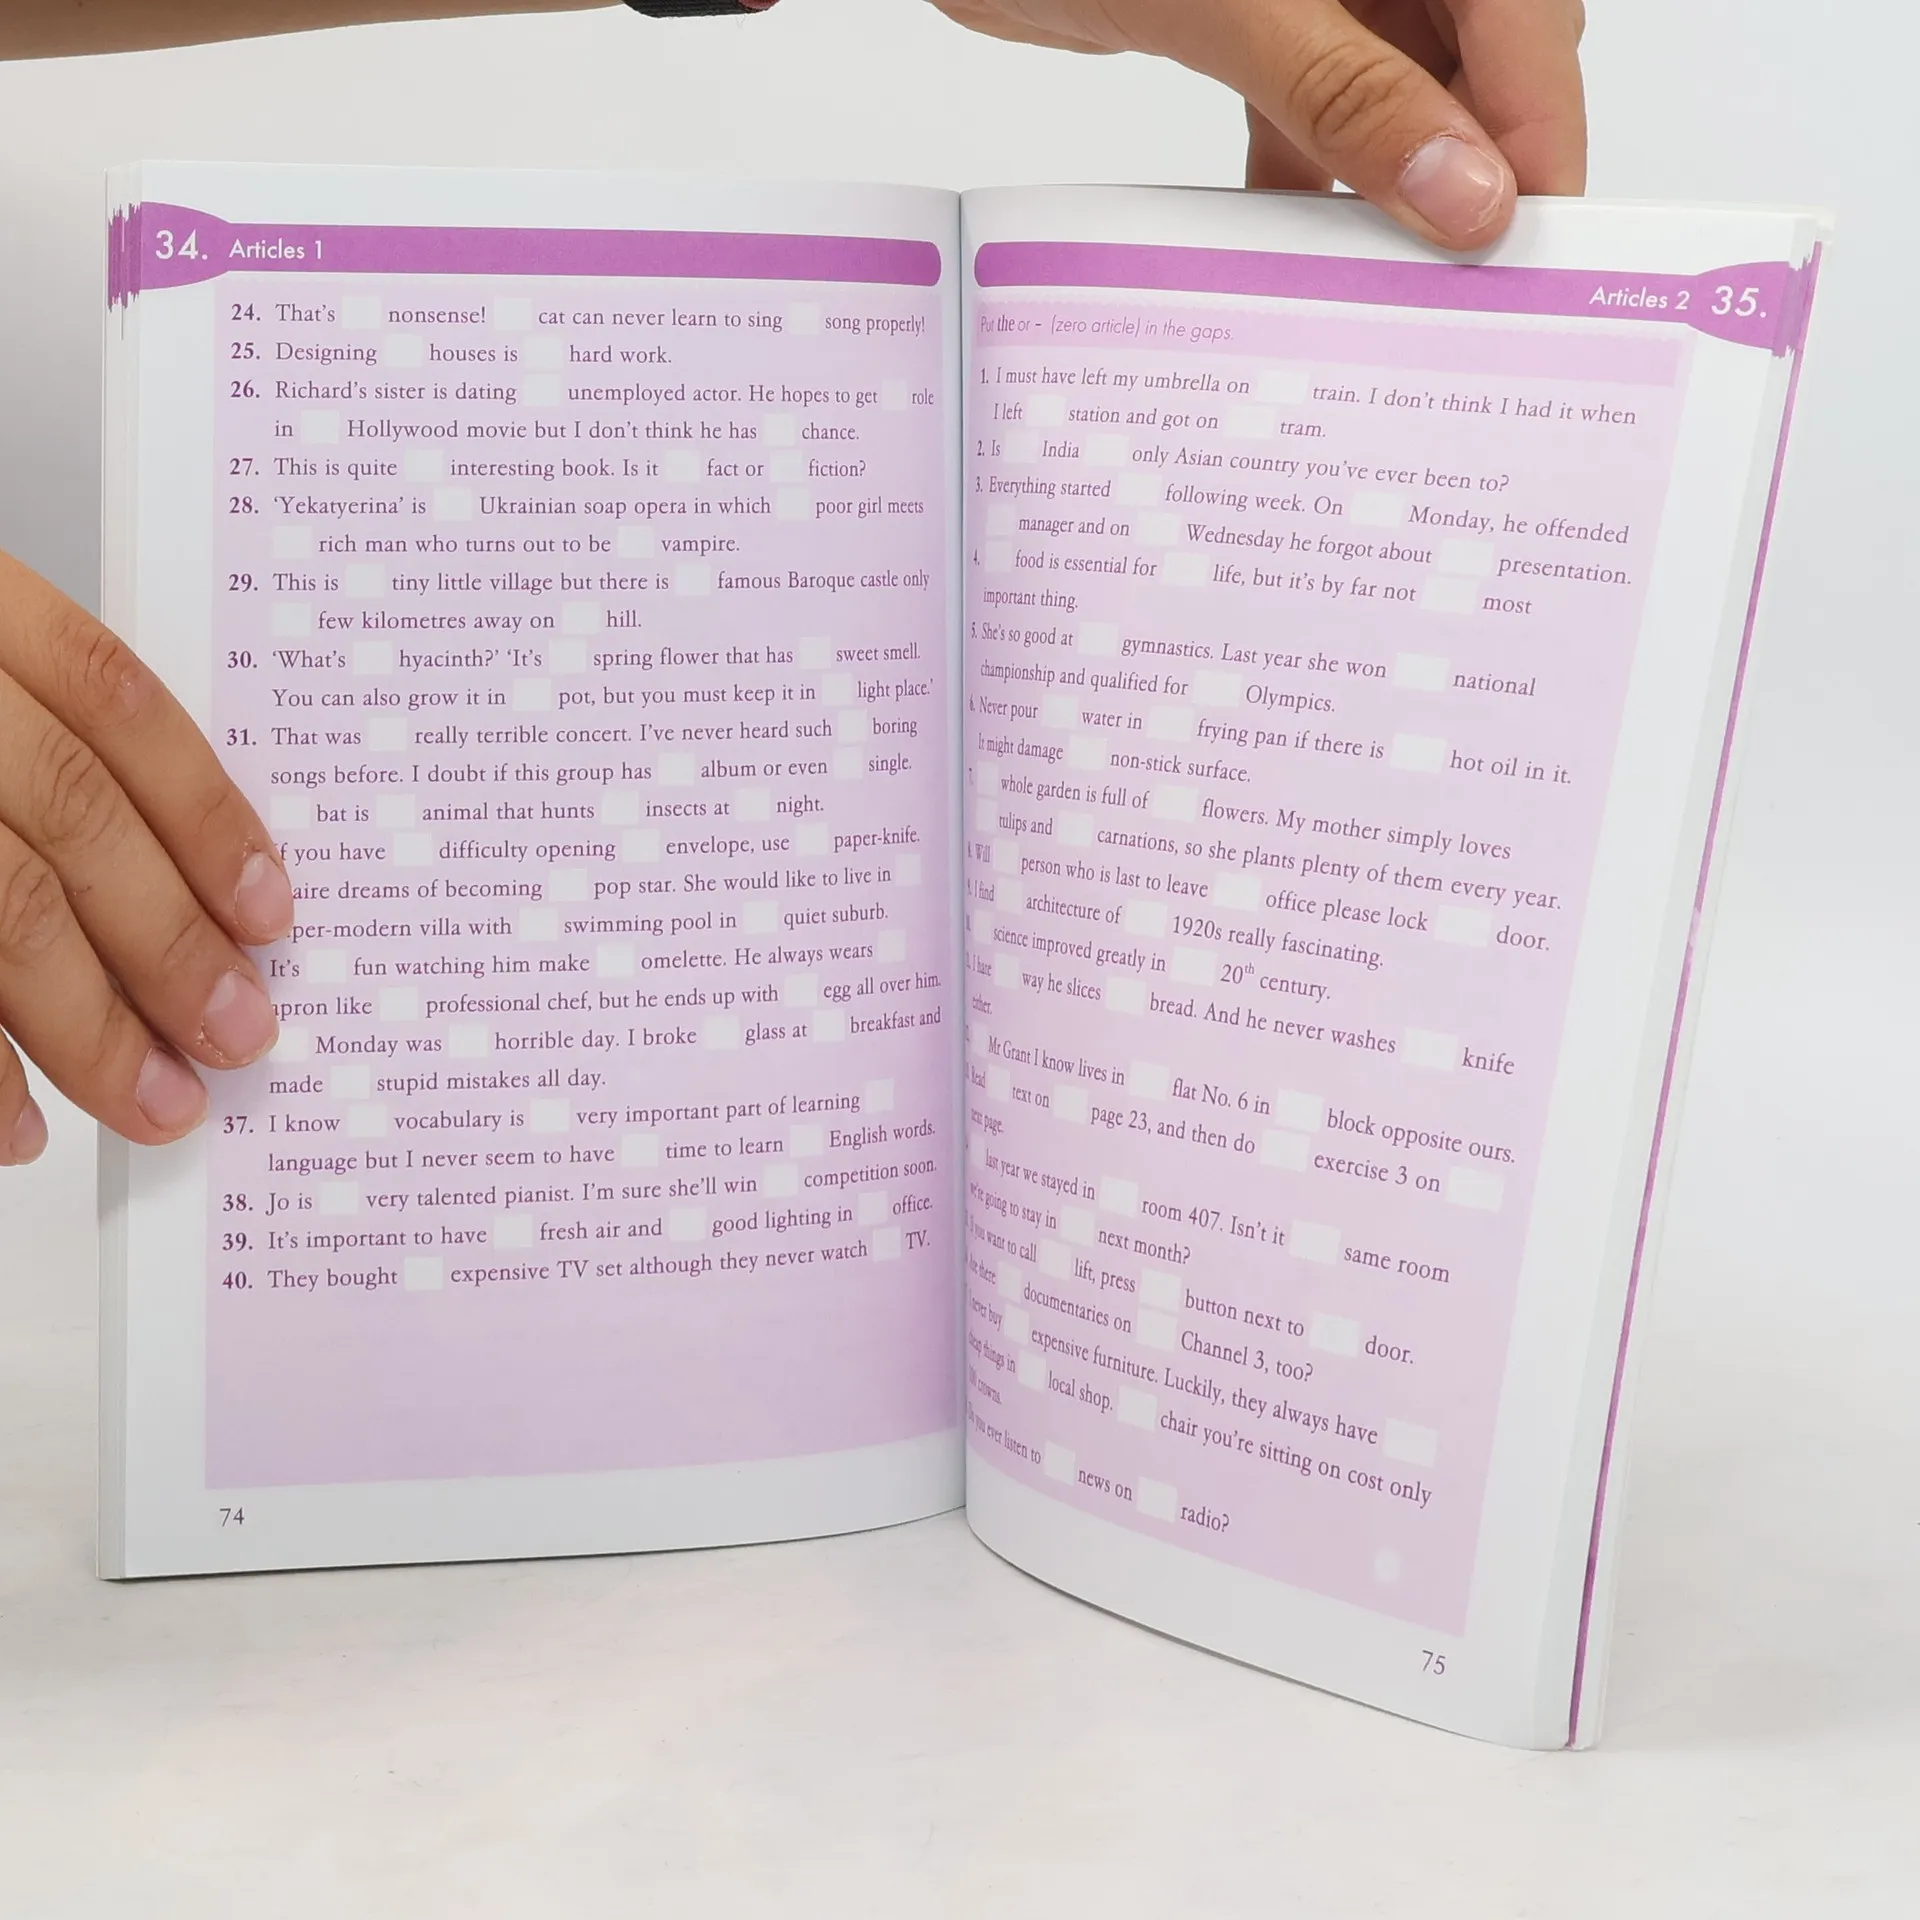 34. Articles 1
24. That's nonsense! cat can never learn to sing song properly!
25. Designing houses is hard work.
26. Richard's sister is dating unemployed actor. He hopes to get role
in Hollywood movie but I don't think he has chance.
27. This is quite interesting book. Is it fact or fiction?
28. 'Yekatyerina' is Ukrainian soap opera in which poor girl meets
rich man who turns out to be vampire.
29. This is tiny little village but there is famous Baroque castle only
few kilometres away on hill.
30. 'What's hyacinth?' 'It's spring flower that has sweet smell.
You can also grow it in pot, but you must keep it in light place.'
31. That was really terrible concert. I've never heard such boring
songs before. I doubt if this group has album or even single.
bat is animal that hunts insects at night.
you have difficulty opening envelope, use paper-knife.
dreams of becoming pop star. She would like to live in
villa with swimming pool in quiet suburb.
It's fun watching him make omelette. He always wears
apron like professional chef, but he ends up with egg all over him.
Monday was horrible day. I broke glass at breakfast and
made stupid mistakes all day.
37. I know vocabulary is very important part of learning
language but I never seem to have time to learn English words.
38. Jo is very talented pianist. I'm sure she'll win competition soon.
39. It's important to have fresh air and good lighting in office.
40. They bought expensive TV set although they never watch TV.
74
Articles 2 35.
Put the or – (zero article) in the gaps.
1. I must have left my umbrella on train. I don't think I had it when
I left station and got on tram.
2. Is India only Asian country you've ever been to?
3. Everything started following week. On Monday, he offended
manager and on Wednesday he forgot about presentation.
4. food is essential for life, but it's by far not most
important thing.
5. She's so good at gymnastics. Last year she won national
championship and qualified for Olympics.
6. Never pour water in frying pan if there is hot oil in it.
It might damage non-stick surface.
7. whole garden is full of flowers. My mother simply loves
tulips and carnations, so she plants plenty of them every year.
8. Will person who is last to leave office please lock door.
9. I find architecture of 1920s really fascinating.
science improved greatly in 20th century.
I hate way he slices bread. And he never washes knife
either.
Mr Grant I know lives in flat No. 6 in block opposite ours.
Read text on page 23, and then do exercise 3 on
next page.
last year we stayed in room 407. Isn't it same room
we're going to stay in next month?
If you want to call lift, press button next to door.
Are there documentaries on Channel 3, too?
I never buy expensive furniture. Luckily, they always have
cheap things in local shop. chair you're sitting on cost only
crowns.
Do you ever listen to news on radio?
75